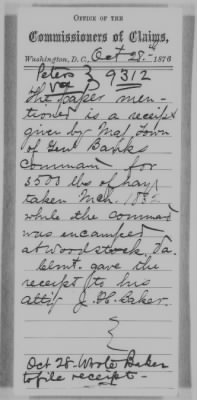 OFFICE OF THE
Commissioners of Claims,
Washington, D.C., Oct 28th 1876
Peters } 9312
Va
The paper men-
tioned is a receipt
given by Maj. Town
of Genl Banks
command for
3503 lbs of hay
taken Mch. 186
while the command
was encamped
at Woodstock, Va.
Clmt. gave the
receipt to his
atty J. H. Baker.
Oct 28. Wrote Baker
to file receipt-